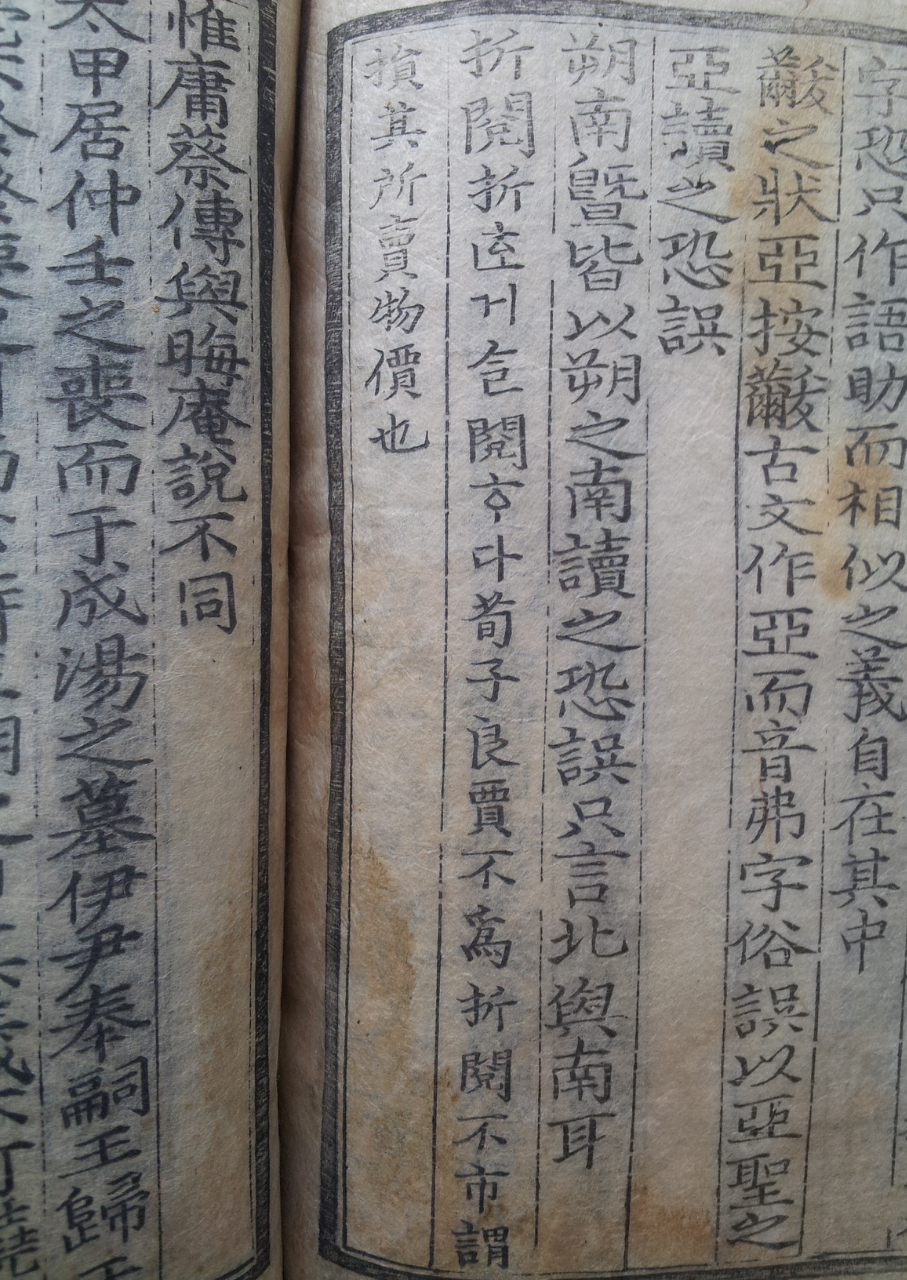 字恐只作語助而相似之義自在其中
黻之狀亞按黻古文作亞而音弗字俗誤以亞聖之
亞讀之恐誤
朔南曁皆以朔之南讀之恐誤只言北與南耳
折閱折거閱ᄒᆞ다荀子良賈不爲折閱不市謂
損其所賣物價也
惟庸蔡傳與晦庵說不同
太甲居仲壬之喪而于成湯之墓伊尹奉嗣王歸于